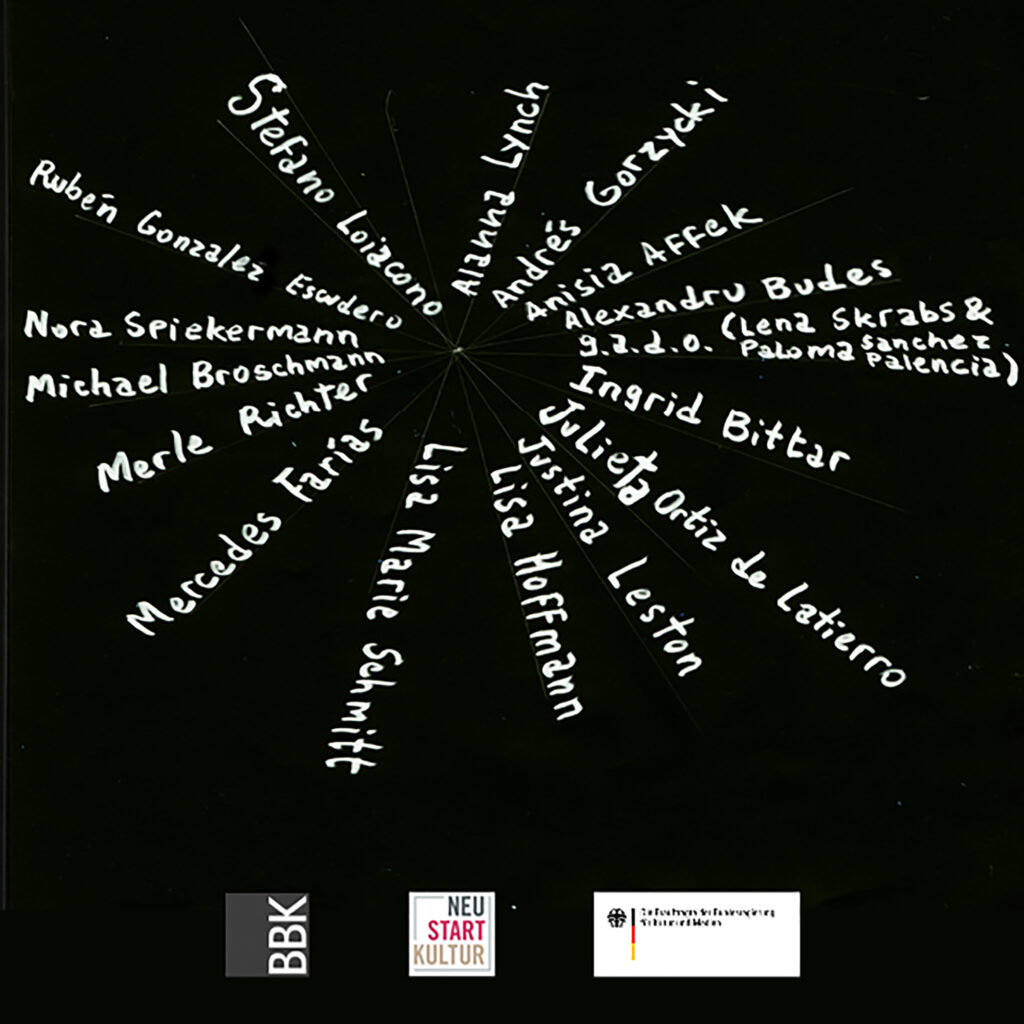 Alanna Lynch
Andrés Gorzycki
Anisia Affek
Alexandru Budes
g.a.d.o. (Lena Skrabs &
Paloma Sanchez
Palencia)
Ingrid Bittar
Julieta Ortiz de Latierro
Justina Leston
Lisa Hoffmann
Lisa Marie Schmitt
Mercedes Farías
Merle Richter
Michael Broschmann
Nora Spiekermann
Rubén Gonzalez Escudero
Stefano Loiacono
BBK
NEU
START
KULTUR
Die Beauftragte der Bundesregierung
für Kultur und Medien